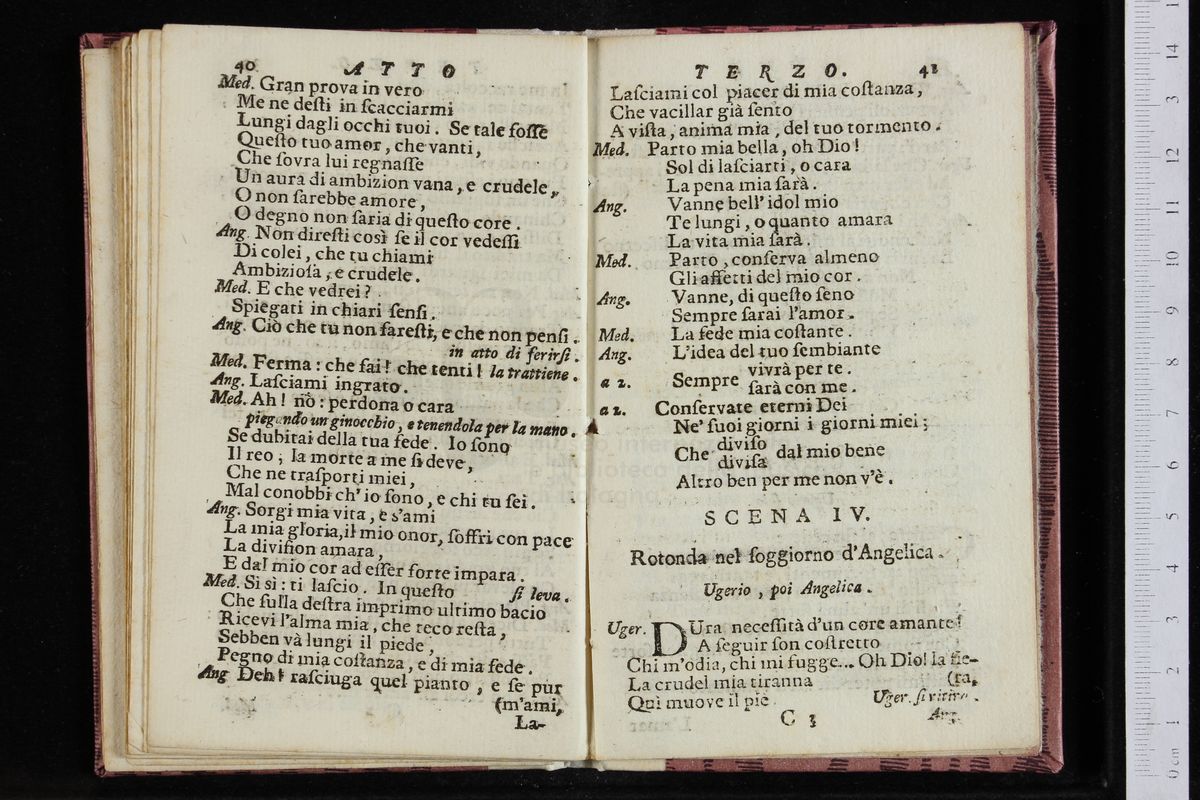 40 ATTO
Med. Gran prova in vero
Me ne deſti in ſcacciarmi
Lungi dagli occhi tuoi. Se tale foſſe
Queſto tuo amor, che vanti,
Che ſovra lui regnaſſe
Un aura di ambizion vana, e crudele,
O non ſarebbe amore,
O degno non ſaria di queſto core.
Ang. Non direſti così ſe il cor vedeſſi
Di colei, che tu chiami
Ambizioſa, e crudele.
Med. E che vedrei?
Spiegati in chiari ſenſi.
Ang. Ciò che tu non fareſti, e che non penſi.
in atto di ferirſi.
Med. Ferma: che fai! che tenti! la trattiene.
Ang. Laſciami ingrato.
Med. Ah! nò: perdona o cara
piegando un ginocchio, e tenendola per la mano.
Se dubitai della tua fede. Io ſono
Il reo; la morte a me ſi deve,
Che ne traſporti miei,
Mal conobbi ch' io ſono, e chi tu ſei.
Ang. Sorgi mia vita, e s'ami
La mia gloria, il mio onor, ſoffri con pace
La diviſion amara,
E dal mio cor ad eſſer forte impara.
Med. Sì sì: ti laſcio. In queſto ſi leva.
Che ſulla deſtra imprimo ultimo bacio
Ricevi l'alma mia, che teco reſta,
Sebben và lungi il piede,
Pegno di mia coſtanza, e di mia fede.
Ang Deh! raſciuga quel pianto, e ſe pur
(m'ami,
La-
TERZO. 41
Laſciami col piacer di mia coſtanza,
Che vacillar già ſento
A viſta, anima mia, del tuo tormento.
Med. Parto mia bella, oh Dio!
Sol di laſciarti, o cara
La pena mia ſarà.
Ang. Vanne bell' idol mio
Te lungi, o quanto amara
La vita mia ſarà.
Med. Parto, conſerva almeno
Gli affetti del mio cor.
Ang. Vanne, di queſto ſeno
Sempre ſarai l'amor.
Med. La fede mia coſtante.
Ang. L'idea del tuo ſembiante
a 2. Sempre vivrà per te.
ſarà con me.
a 2. Conſervate eterni Dei
Ne' ſuoi giorni i giorni miei;
Che diviſo
diviſa dal mio bene
Altro ben per me non v'è.
SCENA IV.
Rotonda nel ſoggiorno d'Angelica.
Ugerio, poi Angelica.
Uger. DUra neceſſità d'un core amante!
A ſeguir ſon coſtretto
Chi m'odia, chi mi fugge... Oh Dio! la fie-
La crudel mia tiranna (ra,
Qui muove il piè. Uger. ſi ritira.
C 3 Ang.